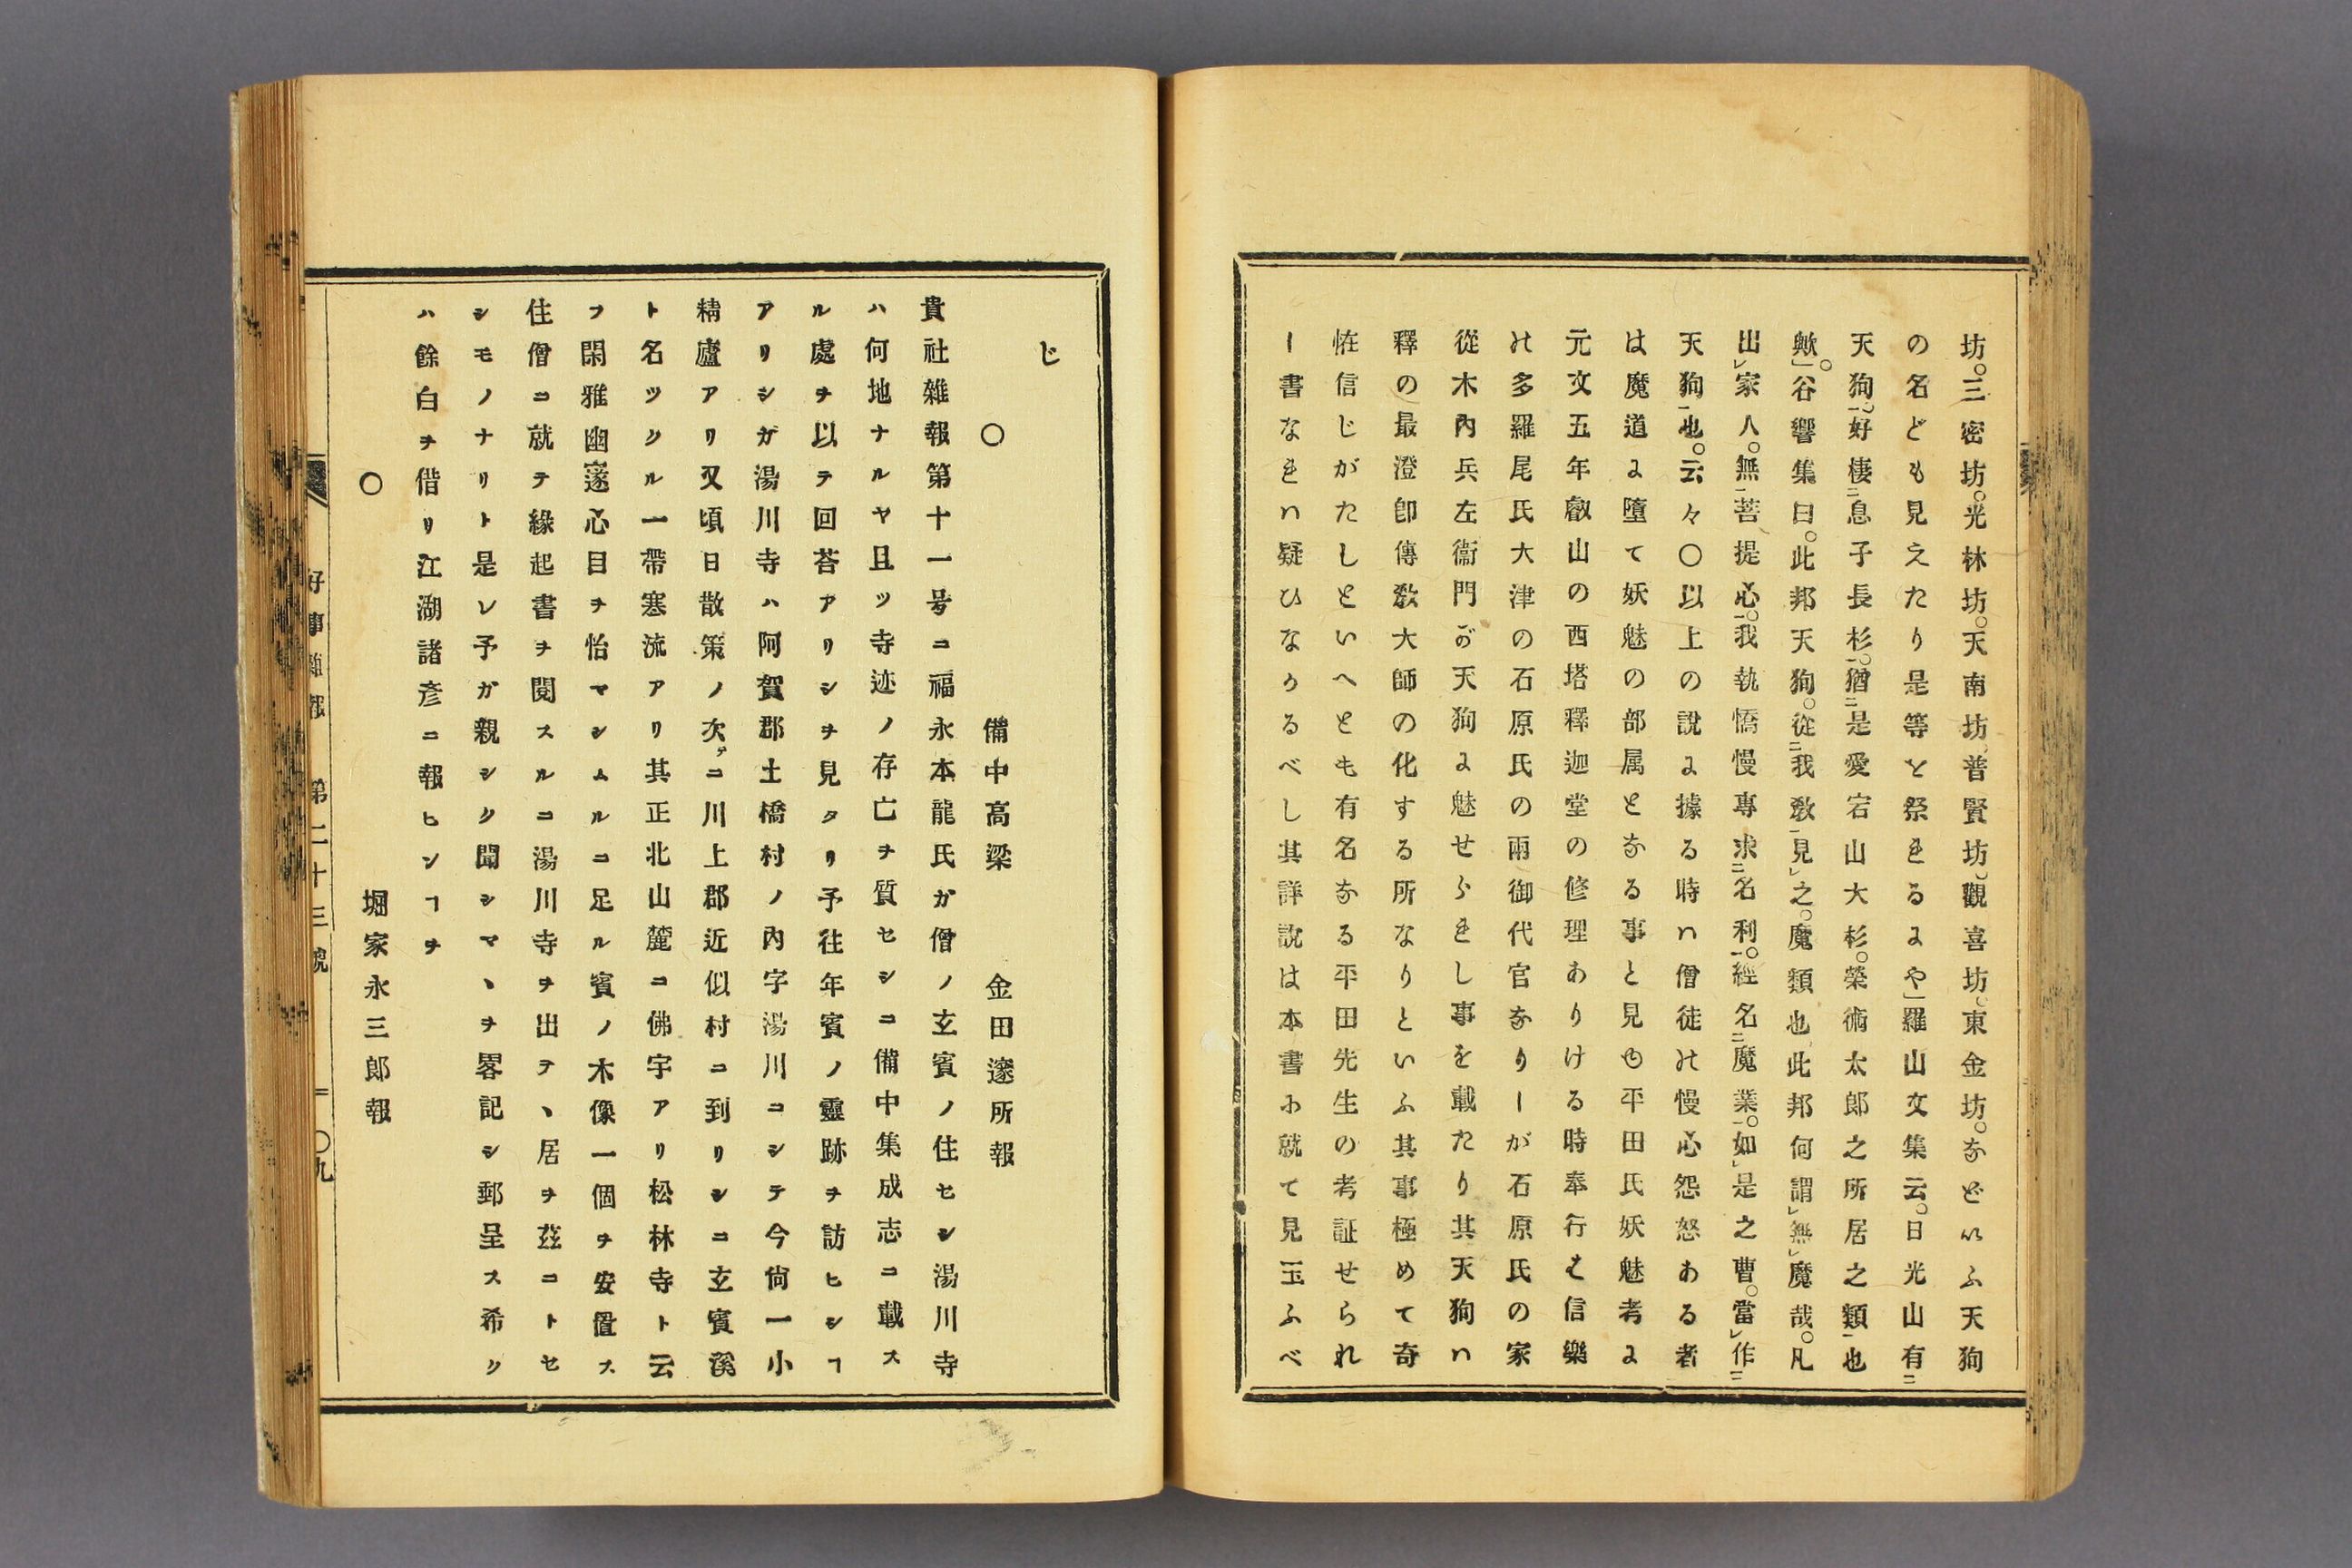 坊。三密坊。光林坊。天南坊。普賢坊。觀喜坊。東金坊。などいふ天狗
の名ども見えたり是等を祭れるにや」羅山文集云。日光山有二
天狗一。好棲二息子長杉一。猶二是愛宕山大杉。榮術太郎之所居之類一也
歟」。谷響集曰。此邦天狗。從二我敎一見レ之。魔類也。此邦何謂レ無レ魔哉。凡
出レ家人。無二菩提心一。我執憍慢專求二名利一。經名二魔業一。如レ是之曹。當レ作二
天狗一也。云々〇以上の說に據る時ハ僧徒の慢心怨怒ある者
は魔道に墮て妖魅の部属となる事と見ゆ平田氏妖魅考に
元文五年叡山の西塔釋迦堂の修理ありける時奉行は信樂
の多羅尾氏大津の石原氏の兩御代官なりしが石原氏の家
從木內兵左衞門が天狗に魅せられし事を載たり其天狗ハ
釋の最澄卽傳敎大師の化する所なりといふ其事極めて奇
恠信じがたしといへとも有名なる平田先生の考証せられ
し書なれハ疑ひなかるべし其詳說は本書に就て見玉ふべ
じ
〇 備中高梁 金田邃所報
貴社雜報第十一号ニ福永本龍氏ガ僧ノ玄賓ノ住セシ湯川寺
ハ何地ナルヤ且ツ寺迹ノ存亡ヲ質セシニ備中集成志ニ載ス
ル處ヲ以テ回荅アリシヲ見タリ予往年賓ノ靈跡ヲ訪ヒシヿ
アリシガ湯川寺ハ阿賀郡土橋村ノ內字湯川ニシテ今尙一小
精廬アリ又頃日散策ノ次デニ川上郡近似村ニ到リシニ玄賓溪
ト名ツクル一帶塞流アリ其正北山麓ニ佛宇アリ松林寺ト云
フ閑雅幽邃心目ヲ怡マシムルニ足ル賓ノ木像一個ヲ安置ス
住僧ニ就テ緣起書ヲ閱スルニ湯川寺ヲ出テヽ居ヲ茲ニトセ
シモノナリト是レ予ガ親シク聞シマヽヲ畧記シ郵呈ス希ク
ハ餘白ヲ借リ江湖諸彥ニ報ヒンヿヲ
〇 堀家永三郎報
好事雜報 第二十三號 二〇九